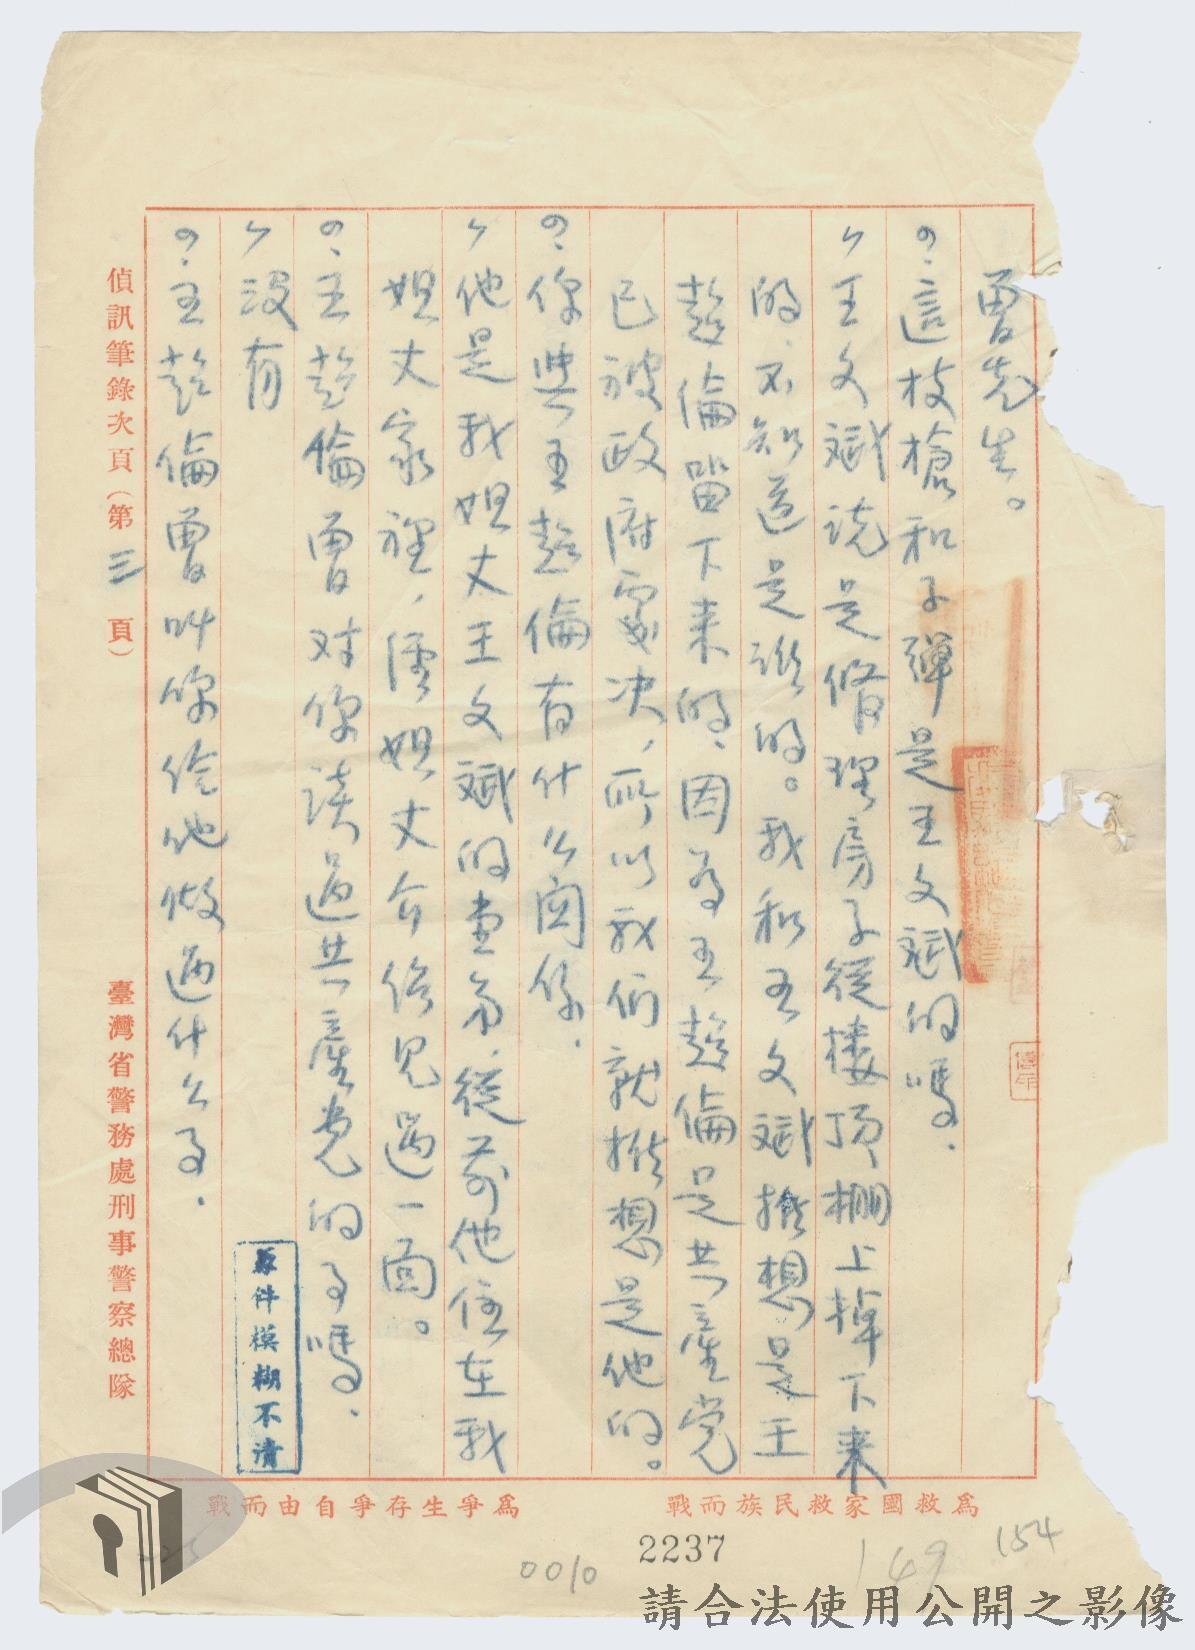 曹先生。
?、這枝槍和子彈是王文斌的嗎、
ケ王文斌说是脩理房子從楼頂棚上掉下来
的、不知道是谁的。我和王文斌推想是王
超倫畄下来的、因为王超倫是共產党
已被政府處决、所以我们就推想是他的。
?、你與王超倫有什么関係、
ケ他是我姐丈王文斌的堂弟、從前他住在我
姐丈家裡、僅姐丈介紹見過一面。
?、王超倫曹对你談過共產党的事嗎、
ケ没有
?、王超倫曹叫你给他做過什么事、
偵訊筆錄次頁（第三頁） 臺灣省警務處刑事警察總隊
原件模糊不清
為救國家救民族而戰 為爭生存爭自由而戰
2237
0010
149
154
請合法使用公開之影像